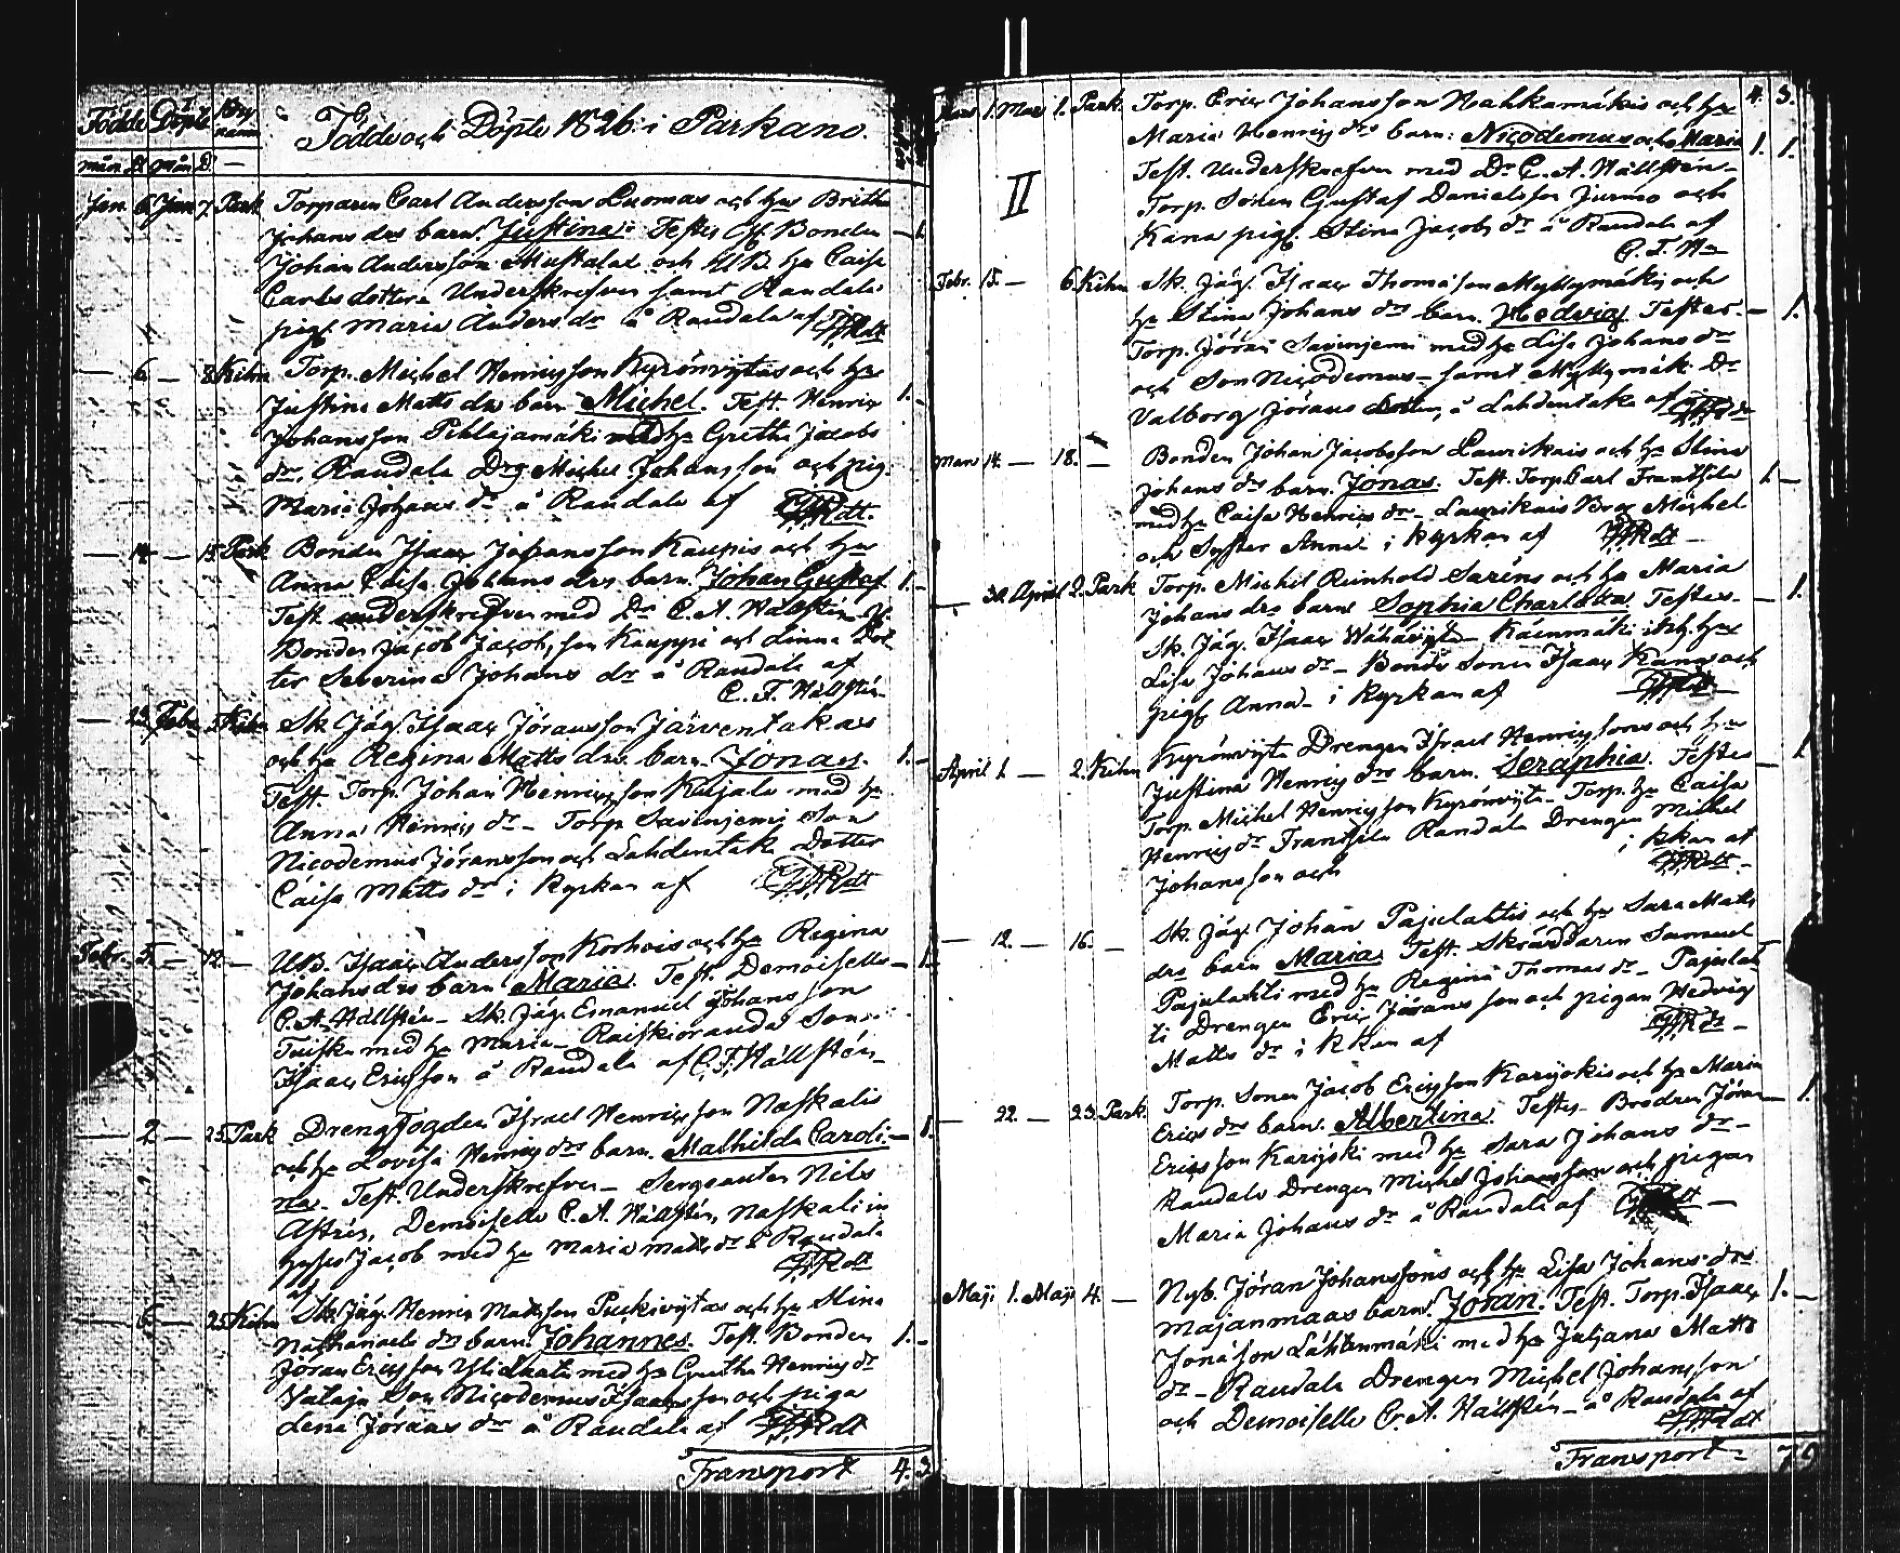 Födde Döpte Byg namn
Födde och Döpte 1826 i Parkano.
mån. D. mån D. —
Jan. 6. Jan 7. Park Torparen Carl Andersson Luomas och hus Britha
Johans drs barn. Justina. Testes Bonden — 1.
Johan Andersson Mustalat och hu Caisa
Carls dotter Underskrefven samt Raudala
pig. Maria Anders dr å Raudala af
— 6. — 8. Kihn Torp. Michel Henricsson Kyrönvytas och hus
Justina Matts drs barn Michel. Test. Henric 1. -
Johansson Pihlajamäki med hu Gretha Jacobs
dr, Raudala Dreng Michel Johansson och pig.
Maria Johans dr å Raudala af
— 14. — 15. Park Bonden Isaac Johansson Kaupis och hus
Anna Caisa Johans drs barn. Johan Gustaf 1. -
Test. underskrefven med Dr C. A. Hällstén
Bonden Jacob Jacobsson Kauppi och Dot-
ter Severina Johans dr å Raudala af
C. F. Hällstén
— Febr. Kihn Sk. Jäg. Isaac Göransson Järventakas
och hu Regina Matts drs barn. Jonas. 1. -
Test. Torp. Johan Henricsson Kujala med hu
Anna Henrics dr - Torp Savinjemi Son
Nicodemus Jöransson och Lahdentaka Dotter
Caisa Matts dr i Kyrkan af
Febr. 5. — 12. — Isaac Andersson Korhois och hu Regina
Johans drs barn Maria. Test. Demoiselle — 1.
C. A. Hällstén - Sk. Jäg. Emanuel Johansson
Tuiska med hu Maria - Raiskioranda Son
Isaac Ericsson å Raudala af C. F. Hällstén -
— 2 — 25. Park Drengfogden Israel Henricsson Naskalis
och hu Lovisa Henrics drs barn. Mathilda Caroli- — 1.
na. Test. Underskrefven - Sergeanten Nils
Astrén, Demoiselle C. A. Hällstén, Naskalin
Jacob med hu Maria Matts dr å Raudala
af
— 6. — 25. Kihn Sk. Jäg. Henric Mattsson Puckivytas och hu Stina
Nathanaels drs barn. Johannes. Test. Bonden 1. -
Jöran Ericsson Yli Laati med hu Gretha Henrics dr
Vataja Son Nicodemus Isaacsson och piga
Lena Jörans dr å Raudala af
Transport 4. 3.
Mars 1. Mars 1. Park. Torp. Eric Johansson Nahkamäkis och hus 4. 3.
Maria Henrics drs barn: Nicodemus och Maria 1. 1.
II Test. Underskrefven med Dr C. A. Hällstén -
Torp. Sonen Gustaf Danielsson Jurmo och
Kana pig. Stina Jacobs dr å Raudala af
C. F. Hn
Febr. 15. — 6. Kihn Sk. Jäg. Isaac Thomasson Myllymäkis och
hu Stina Johans drs barn. Hedvig. Testes. — 1.
Torp. Jöran Savinjemi med hu Lisa Johans dr
och Son Nicodemus - samt Myllymäk. Dr
Valborg Jörans dotter, å Lahdentaka af
Mars 14. — 18. — Bonden Johan Jacobsson Laurikais och hu Stina
Johans drs barn. Jonas. Test. Torp. Carl Frantsila 1. —
med hu Caisa Henrics dr - Laurikais Bror Michel
och Syster Anna - i Kyrkan af
— 30. April 2. Park Torp. Michel Reinhold Saréns och hu Maria
Johans drs barn Sophia Charlotta. Testes - — 1.
Sk. Jäg. Isaac Wähävyta - Käenmäki hus
Lisa Johans dr - Bonde Sonen Isaac Kana och
pig. Anna - i Kyrkan af
April 1. — 2. Kihn Kyrönvyta Drengen Israel Henricssons och hus
Justina Henrics drs barn. Seraphia. Testes — 1
Torp. Michel Henricsson Kyrönvyta - Torp. hu Caisa
Henrics dr Frantsila Raudala Drengen Michel
Johansson och i Kkan af
— 12. — 16. — Sk. Jäg. Johan Pajulahtis och hus Sara Matts
drs barn Maria. Test. Skräddaren Samuel
Pajulahti med hu Regina Thomas dr - Pajulah-
ti Drengen Eric Jöransson och pigan Hedvig
Matts dr i Kkan af
— 22. — 23. Park. Torp. Sonen Jacob Ericsson Karijokis och hu Maria
Erics drs barn. Albertina. Testes - Brodren Jöran — 1.
Ericsson Karijoki med hu Sara Johans dr -
Raudala Drengen Michel Johansson och pigan
Maria Johans dr å Raudala af
Maji 1. Maji 4. — Nyb. Jöran Johanssons och hu Lisa Johans drs
Majanmaas barn. Jöran. Test. Torp. Isaac 1. -
Jonasson Lähtenmäki med hu Juljana Matts
dr - Raudala Drengen Michel Johansson
och Demoiselle C. A. Hällstén - å Raudala af
Transport - 7. 9